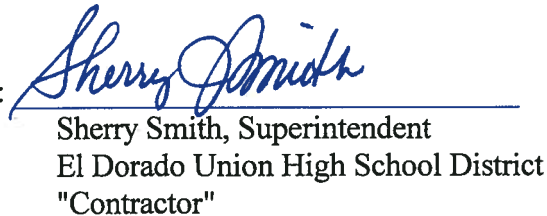 : Sherry J Smith
Sherry Smith, Superintendent
El Dorado Union High School District
"Contractor"